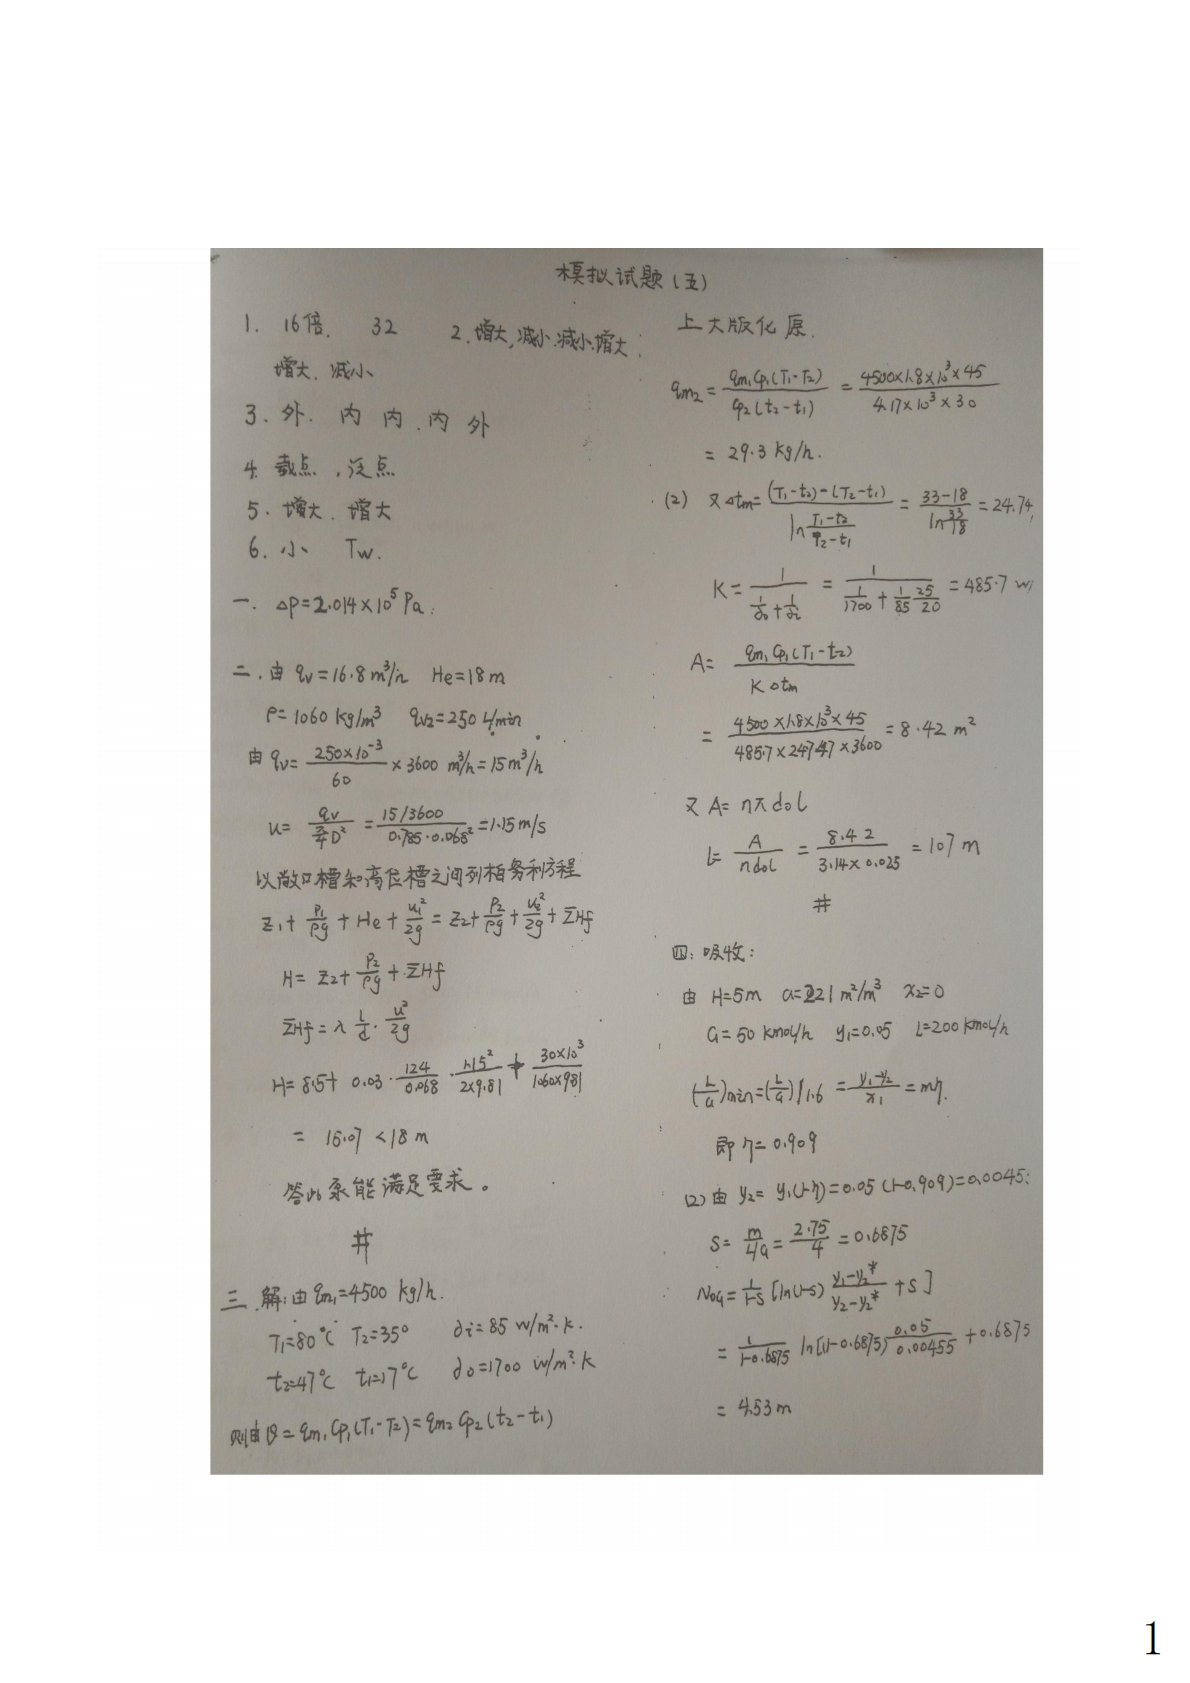 模拟试题(五)
1. 16倍. 32 2.增大,减小.减小.增大.
增大. 减小
3. 外. 内 内. 内 外
4. 载点. 泛点
5. 增大. 增大
6. 小、 Tw.
一. ΔP=2.014×10⁵ Pa.
二. 由 qv=16.8 m³/h He=18m
ρ=1060 kg/m³ qv₂=250 L/min
由 qv= 250×10⁻³/60 × 3600 m³/h = 15 m³/h
u= qv/(π/4 D²) = (15/3600)/(0.785·0.068²) = 1.15 m/s
以敞口槽和高位槽之间列柏务利方程
Z₁+ P₁/ρg + He + u₁²/2g = Z₂+ P₂/ρg + u₂²/2g + ΣHf
H= Z₂+ P₂/ρg + ΣHf
ΣHf = λ l/d · u²/2g
H= 8.5+ 0.03· 124/0.068 · 1.15²/(2×9.81) + 30×10³/(1060×9.81)
= 15.07 <18 m
答此泵能满足要求。
#
三.解:由 qm₁=4500 kg/h.
T₁=80℃ T₂=35° αi=85 W/m²·K.
t₂=47℃ t₁=17℃ αo=1700 W/m²·K
则由 Q= qm₁Cp₁(T₁-T₂)=qm₂Cp₂(t₂-t₁)
上大版化原.
qm₂= qm₁Cp₁(T₁-T₂)/Cp₂(t₂-t₁) = 4500×1.8×10³×45/4.17×10³×30
= 29.3 kg/h.
(2) 又Δtm= ((T₁-t₂)-(T₂-t₁))/ln((T₁-t₂)/(T₂-t₁)) = (33-18)/ln(33/18) = 24.74
K= 1/(1/αo + 1/αi) = 1/(1/1700 + 1/85 25/20) = 485.7 w/
A= qm₁Cp₁(T₁-t₂)/KΔtm
= 4500×1.8×10³×45/485.7×24.747×3600 = 8.42 m²
又 A= nπdol
l= A/ndol = 8.42/3.14×0.025 = 107 m
#
四: 吸收:
由 H=5m a=221 m²/m³ x₂=0
G=50 kmol/h y₁=0.05 L=200 kmol/h
(L/G)min=(L/G)/1.6 = (y₁-y₂)/x₁ = mη.
即 η=0.909
(2) 由 y₂= y₁(1-η)=0.05 (1-0.909)=0.0045:
S= m/L/G = 2.75/4 = 0.6875
NoG= 1/1-S [ln(1-S) (y₁-y₂*)/(y₂-y₂*) + S]
= 1/1-0.6875 ln[(1-0.6875) 0.05/0.00455 + 0.6875
= 4.53 m
1